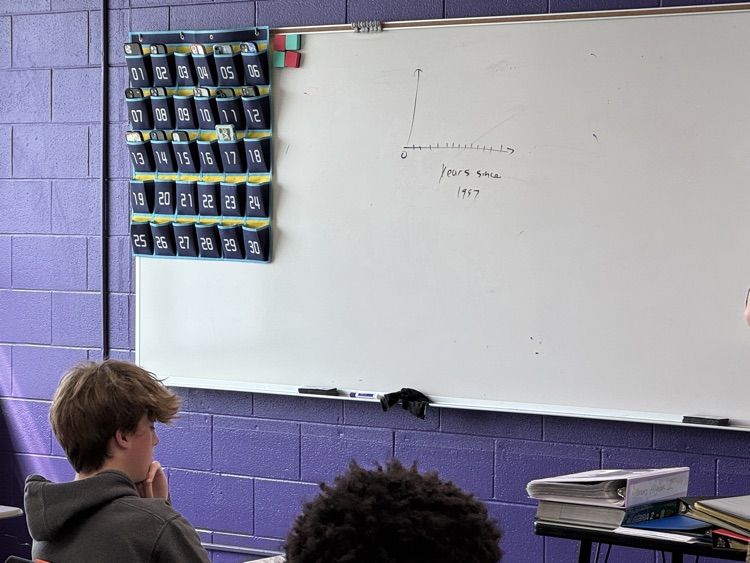 01 02 03 04 05 06
07 08 09 10 11 12
13 14 15 16 17 18
19 20 21 22 23 24
25 26 27 28 29 30
0
Years since
1997